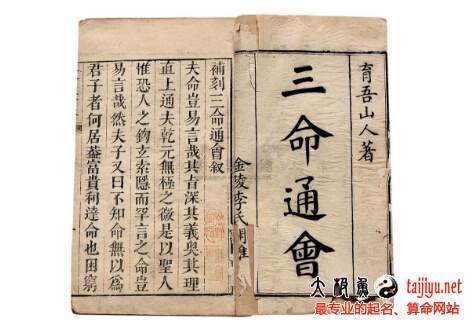 育吾山人著
三命通會
金陵李氏
補刻三命通會敘
夫命豈易言哉其旨深其義奧其理
直上通夫乾元無極之微是以聖人
惟恐人之鉤玄索隱而罕言之命豈
易言哉然夫子又曰不知命無以為
君子者何居葢富貴利達命也困窮
taijiyu.net
最专业的起名、算命网站